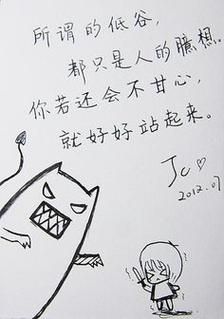 所谓的低谷，
都只是人的臆想。
你若还会不甘心，
就好好站起来。
Jc♡
2012.07